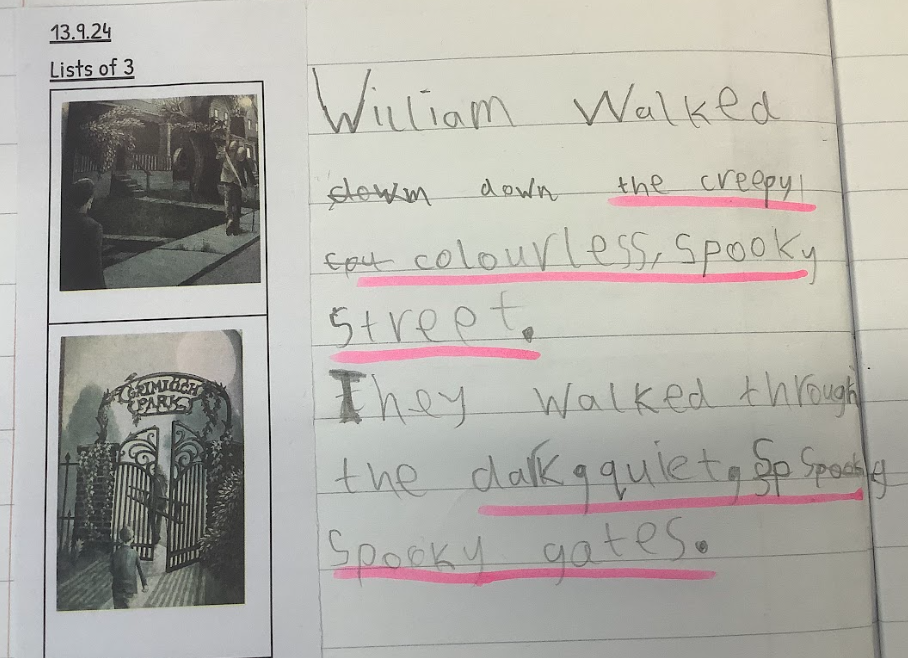 13.9.24
Lists of 3
GRIMLOCH
PARK
William Walked
down the creepy,
colourless, spooky
street.
They walked through
the dark, quiet, Sp Spooky
Spooky gates.